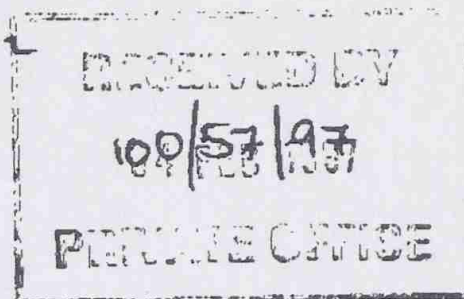 RECEIVED BY
100/57/97
PRIVATE OFFICE